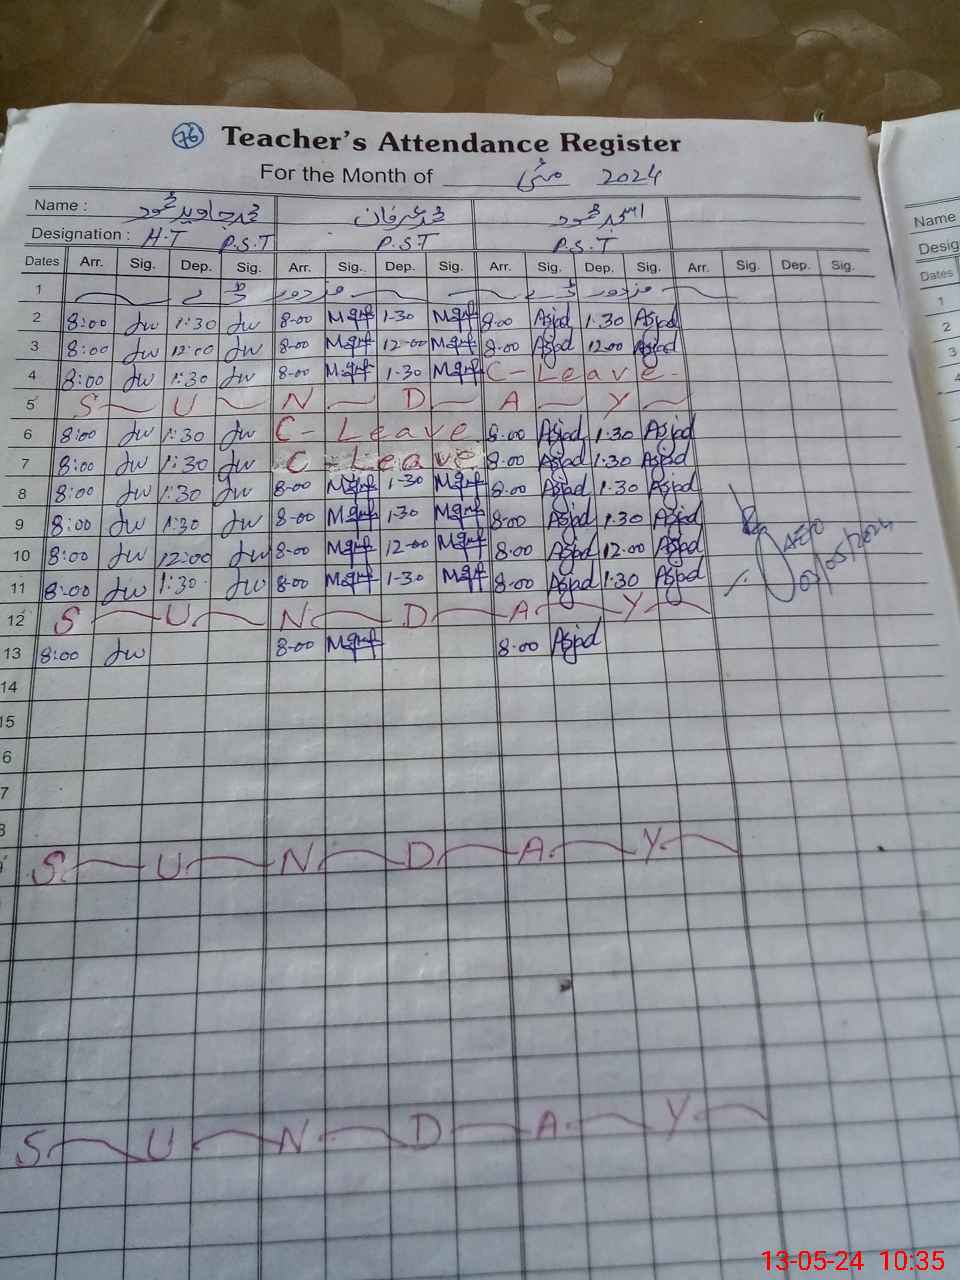 76 Teacher's Attendance Register
For the Month of مئی 2024
Name : محمد جاوید محمود محمد عرفان اسجد محمود
Designation : H.T P.S.T P.S.T P.S.T
Dates Arr. Sig. Dep. Sig. Arr. Sig. Dep. Sig. Arr. Sig. Dep. Sig. Arr. Sig. Dep. Sig.
1 یوم مزدور
2 8:00 Jw 1:30 Jw 8-00 1-30 8-00 Asjd 1-30 Asjd
3 8:00 Jw 12:00 Jw 8-00 12-00 8-00 Asjd 12-00 Asjd
4 8:00 Jw 1:30 Jw 8-00 1-30 C-Leave
5 S U N D A Y
6 8:00 Jw 1:30 Jw C-Leave 8-00 Asjd 1-30 Asjd
7 8:00 Jw 1:30 Jw C-Leave 8-00 Asjd 1-30 Asjd
8 8:00 Jw 1:30 Jw 8-00 1-30 8-00 Asjd 1-30 Asjd
9 8:00 Jw 1:30 Jw 8-00 1-30 8-00 Asjd 1-30 Asjd
10 8:00 Jw 12:00 Jw 8-00 12-00 8-00 Asjd 12-00 Asjd
11 8:00 Jw 1:30 Jw 8-00 1-30 8-00 Asjd 1-30 Asjd
AEO
12 S U N D A Y
13 8:00 Jw 8-00 8-00 Asjd
14
15
6
7
8
9 S U N D A Y
S U N D A Y
Name
Desig
Dates
1
2
3
4
13-05-24 10:35